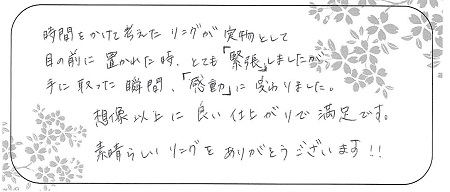 時間をかけて考えたリングが実物として
目の前に置かれた時、とても「緊張」しましたが、
手に取った瞬間、「感動」に変わりました。
想像以上に良い仕上がりで満足です。
素晴らしいリングをありがとうございます!!